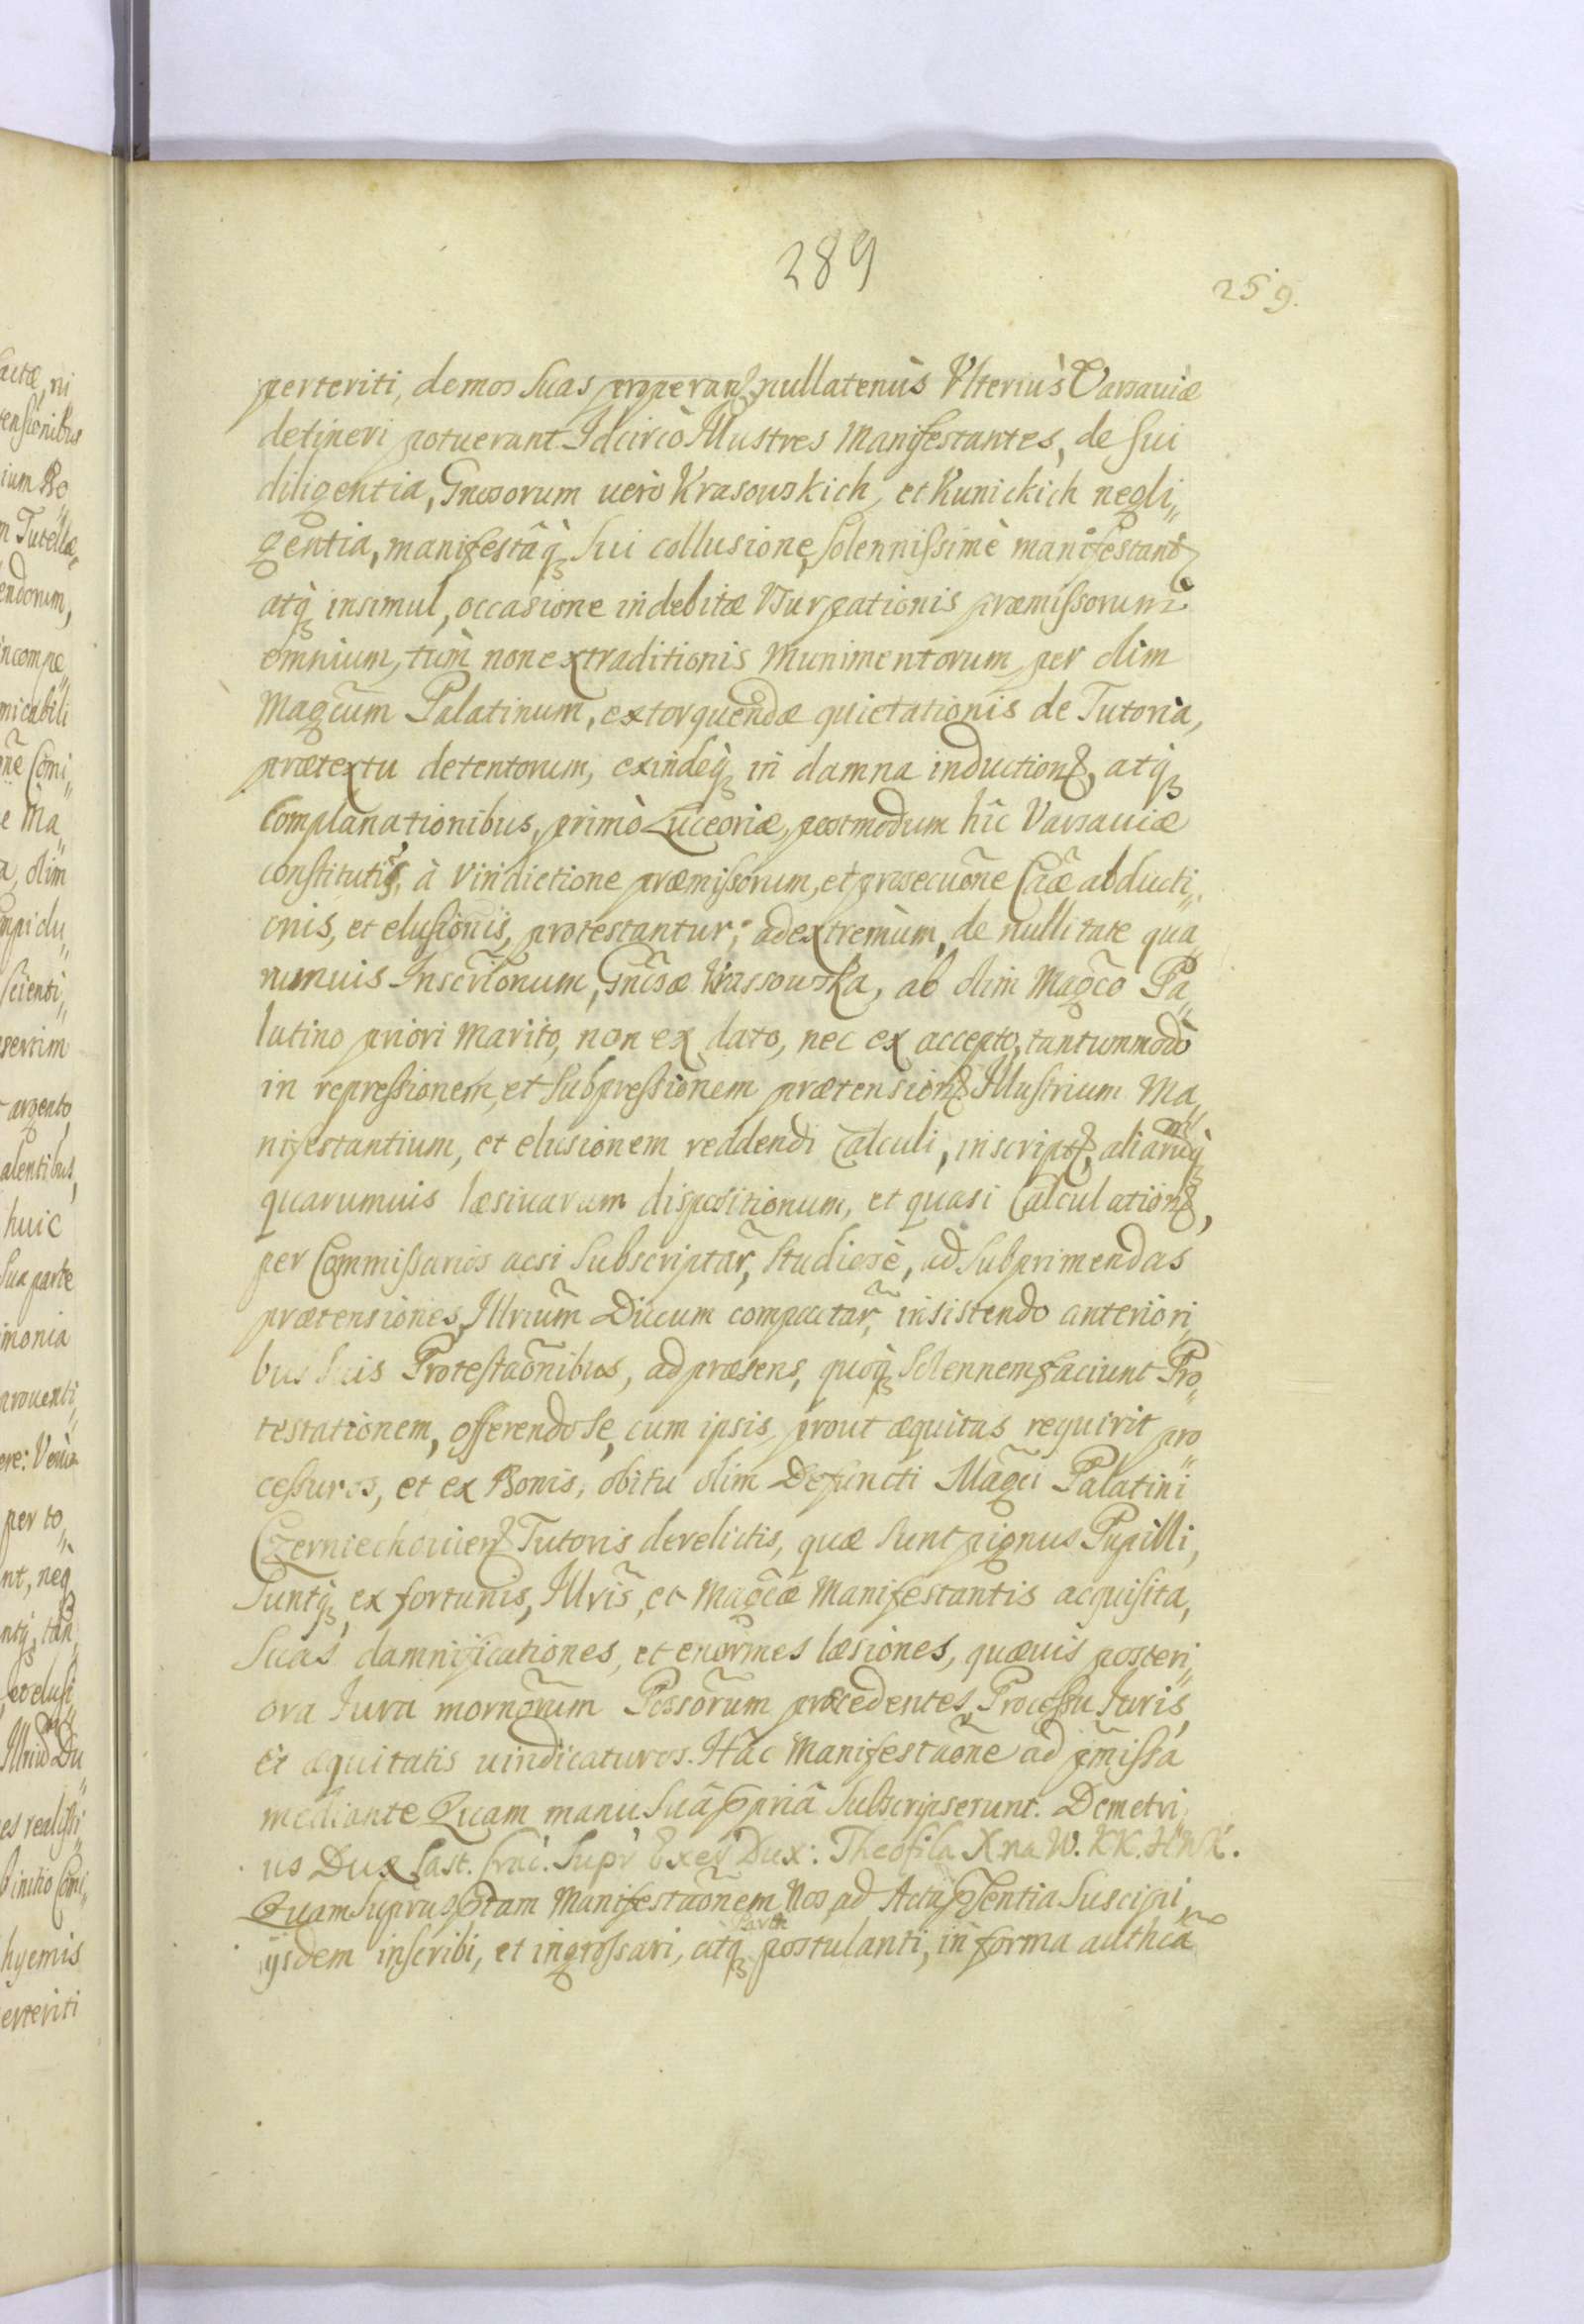 289
259.
perteriti, domos suas properan nullatenùs Ulteriùs Varsaviæ
detineri potuerant Idcircò Illustres Manifestantes, de sui
diligentia, Gnosorum verò Krasowskich et Kunickich negli„
gentia, manifestâq; sui collusione, solennissimè manifestant
atq; insimul, occasione indebitæ Usurpationis præmissorum
omnium, tùm non extraditionis Munimentorum per olim
Magcum Palatinum, extorquendæ quietationis de Tutoria,
prætextu detentorum, exindeq; in damna induction, atq;
complanationibus, primò Luceoriæ, postmodum hîc Varsaviæ
constitutis, à vindictione præmissorum, et prosecuõne Cãæ abducti„
onis, et elusionis, protestantur; ad extremùm, de nullitate qua„
rumvis Inscriõonum, Gnosæ Krassowska, ab olim Magco Pa„
latino priori Marito, non ex dato, nec ex accepto, tantummodò
in repressionem, et subpressionem prætension Illustrium Ma„
nifestantium, et elusionem reddendi Calculi, inscript, aliarumq;
quarumvis læsivarum dispositionum, et quasi Calculation,
per Commissarios acsi subscriptar, studiosè, ad subprimendas
prætensiones, Illrium Ducum compactar, insistendo anteriori„
bus suis Protestaõnibus, ad præsens, quoq; solennem faciunt Pro„
testationem, offerendo se, cum ipsis, prout æquitas requirit pro„
cessuros, et ex Bonis, obitu olim Defuncti Magci Palatini
Czerniechovien Tutoris derelictis, quæ sunt pignus Pupilli,
suntq; ex fortunis, Illris, et Magcæ Manifestantis acquisita,
suas damnificationes, et enormes læsiones, quævis posteri„
ora Iura mornorum Possorum præcedentes, Processu Iuris,
et æquitatis vindicaturos. Hâc Manifestaõne ad pmissa
mediante Quam manu suâ ppriâ subscripserunt. Demetri„
us Dux Cast. Crac. Supr Exer Dux: Theofila Xna W. KK. HWK.
Quam suprasptam Manifestaõnem Nos ad Acta psentia suscipi,
iisdem inscribi, et ingrossari, atq; parti postulanti, in forma authca